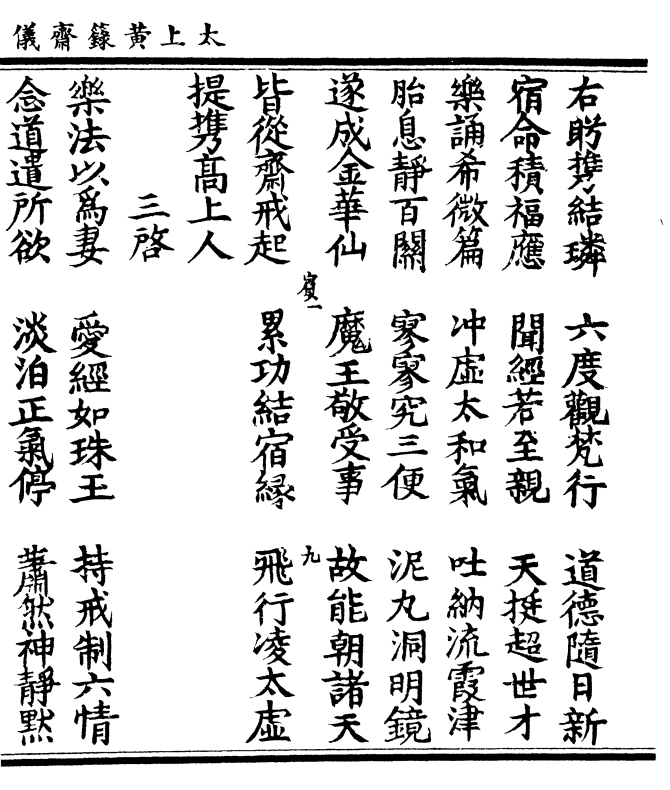 太上黃籙齋儀
右盻㩦結璘 六度觀梵行 道德隨日新
宿命積福應 聞經若至親 天挺超世才
樂誦希微篇 冲虛太和氣 吐納流霞津
胎息靜百關 寥寥究三便 泥丸洞明鏡
遂成金華仙 魔王敬受事 故能朝諸天
賔一 九
皆從齋戒起 累功結宿緣 飛行凌太虛
提㩦高上人
三啓
樂法以爲妻 愛經如珠玉 持戒制六情
念道遣所欲 淡泊正氣停 蕭然神靜默